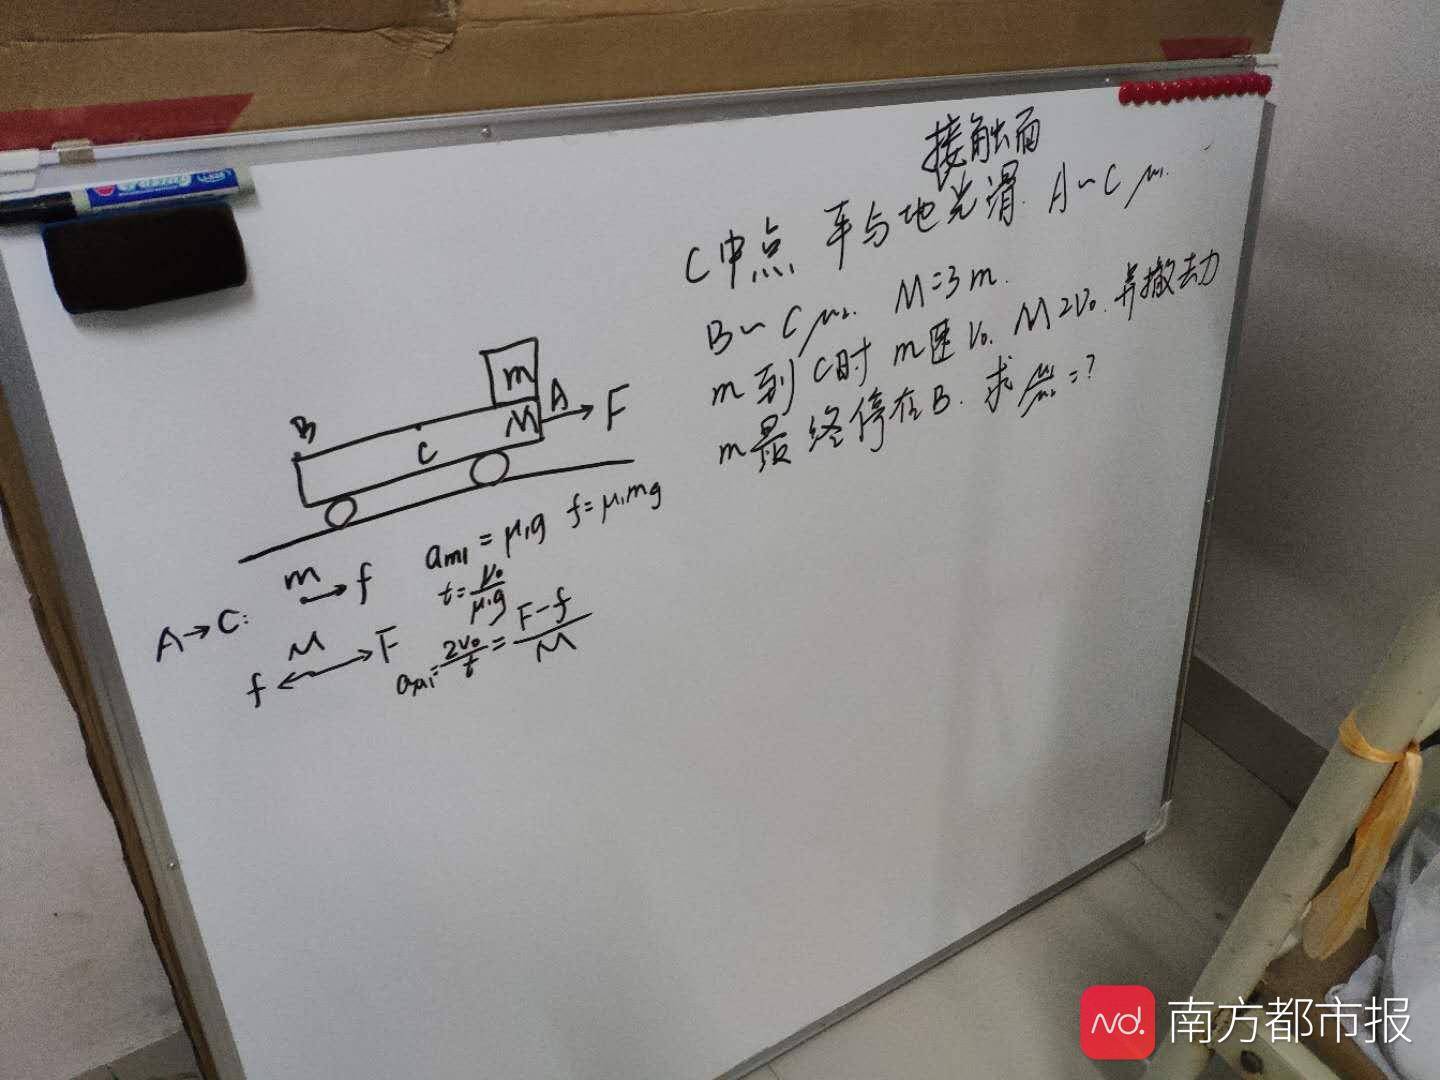 接触面
C中点 车与地光滑. A~C μ₁.
B~C μ₂. M=3m.
m到C时 m速V₀. M 2V₀. 并撤去力
m最终停在B. 求 μ₁/μ₂=?
m
B
C
M
A
F
A→C:
m
f
am1 = μ₁g f=μ₁mg
t=V₀/μ₁g
f
M
F
aM1=2V₀/t=F-f/M
Nd. 南方都市报